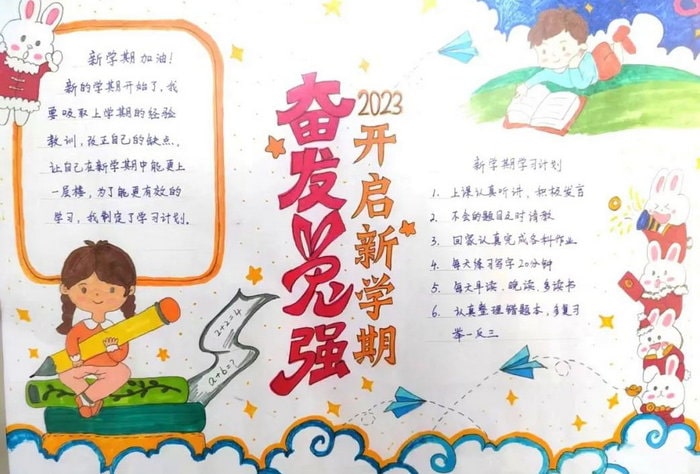 新学期加油!
新的学期开始了,我
要吸取上学期的经验
教训,改正自己的缺点,
让自己在新学期中能更上
一层楼,为了能更有效的
学习,我制定了学习计划。
奋发兔强
2023
开启新学期
2+2=4
a+b=?
新学期学习计划
1. 上课认真听讲,积极发言
2. 不会的题目及时请教
3. 回家认真完成各科作业
4. 每天练习写字20分钟
5. 每天早读,晚读,多读书
6. 认真整理错题本,多复习
举一反三